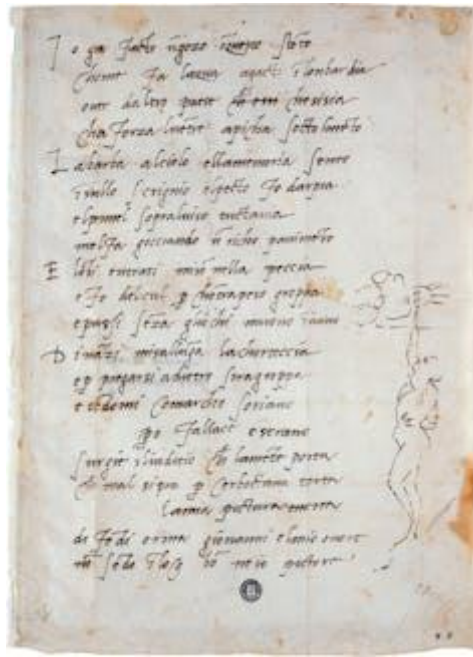 I o gia facto ugozo questo steto
chome fa lacua agacti i lombardia
over daltro paese che sisia
cha forza lvetre apicha socto lmeto
L a barba alcielo ellamemoria sento
i sullo scrignio elpecto fo darpia
elpenel sopraluiso tuctauia
melfa gocciando u richo pauimeto
E lobi entrati nella peccia
e fo delcul p chotrapeso groppa
epassi seza gliochi muouo inuano
D inazi misalluga lachorteccia
ep piegarsi adietro siragroppa
e tedomi comarcho soriano
po fallace e strano
surgie iliuditio ch lamete porta
ch mal sitra p cerboctana torta
lamia pictura morta
difedi orma giouanni elmio onore
no sedo ilog bo ne io pictore